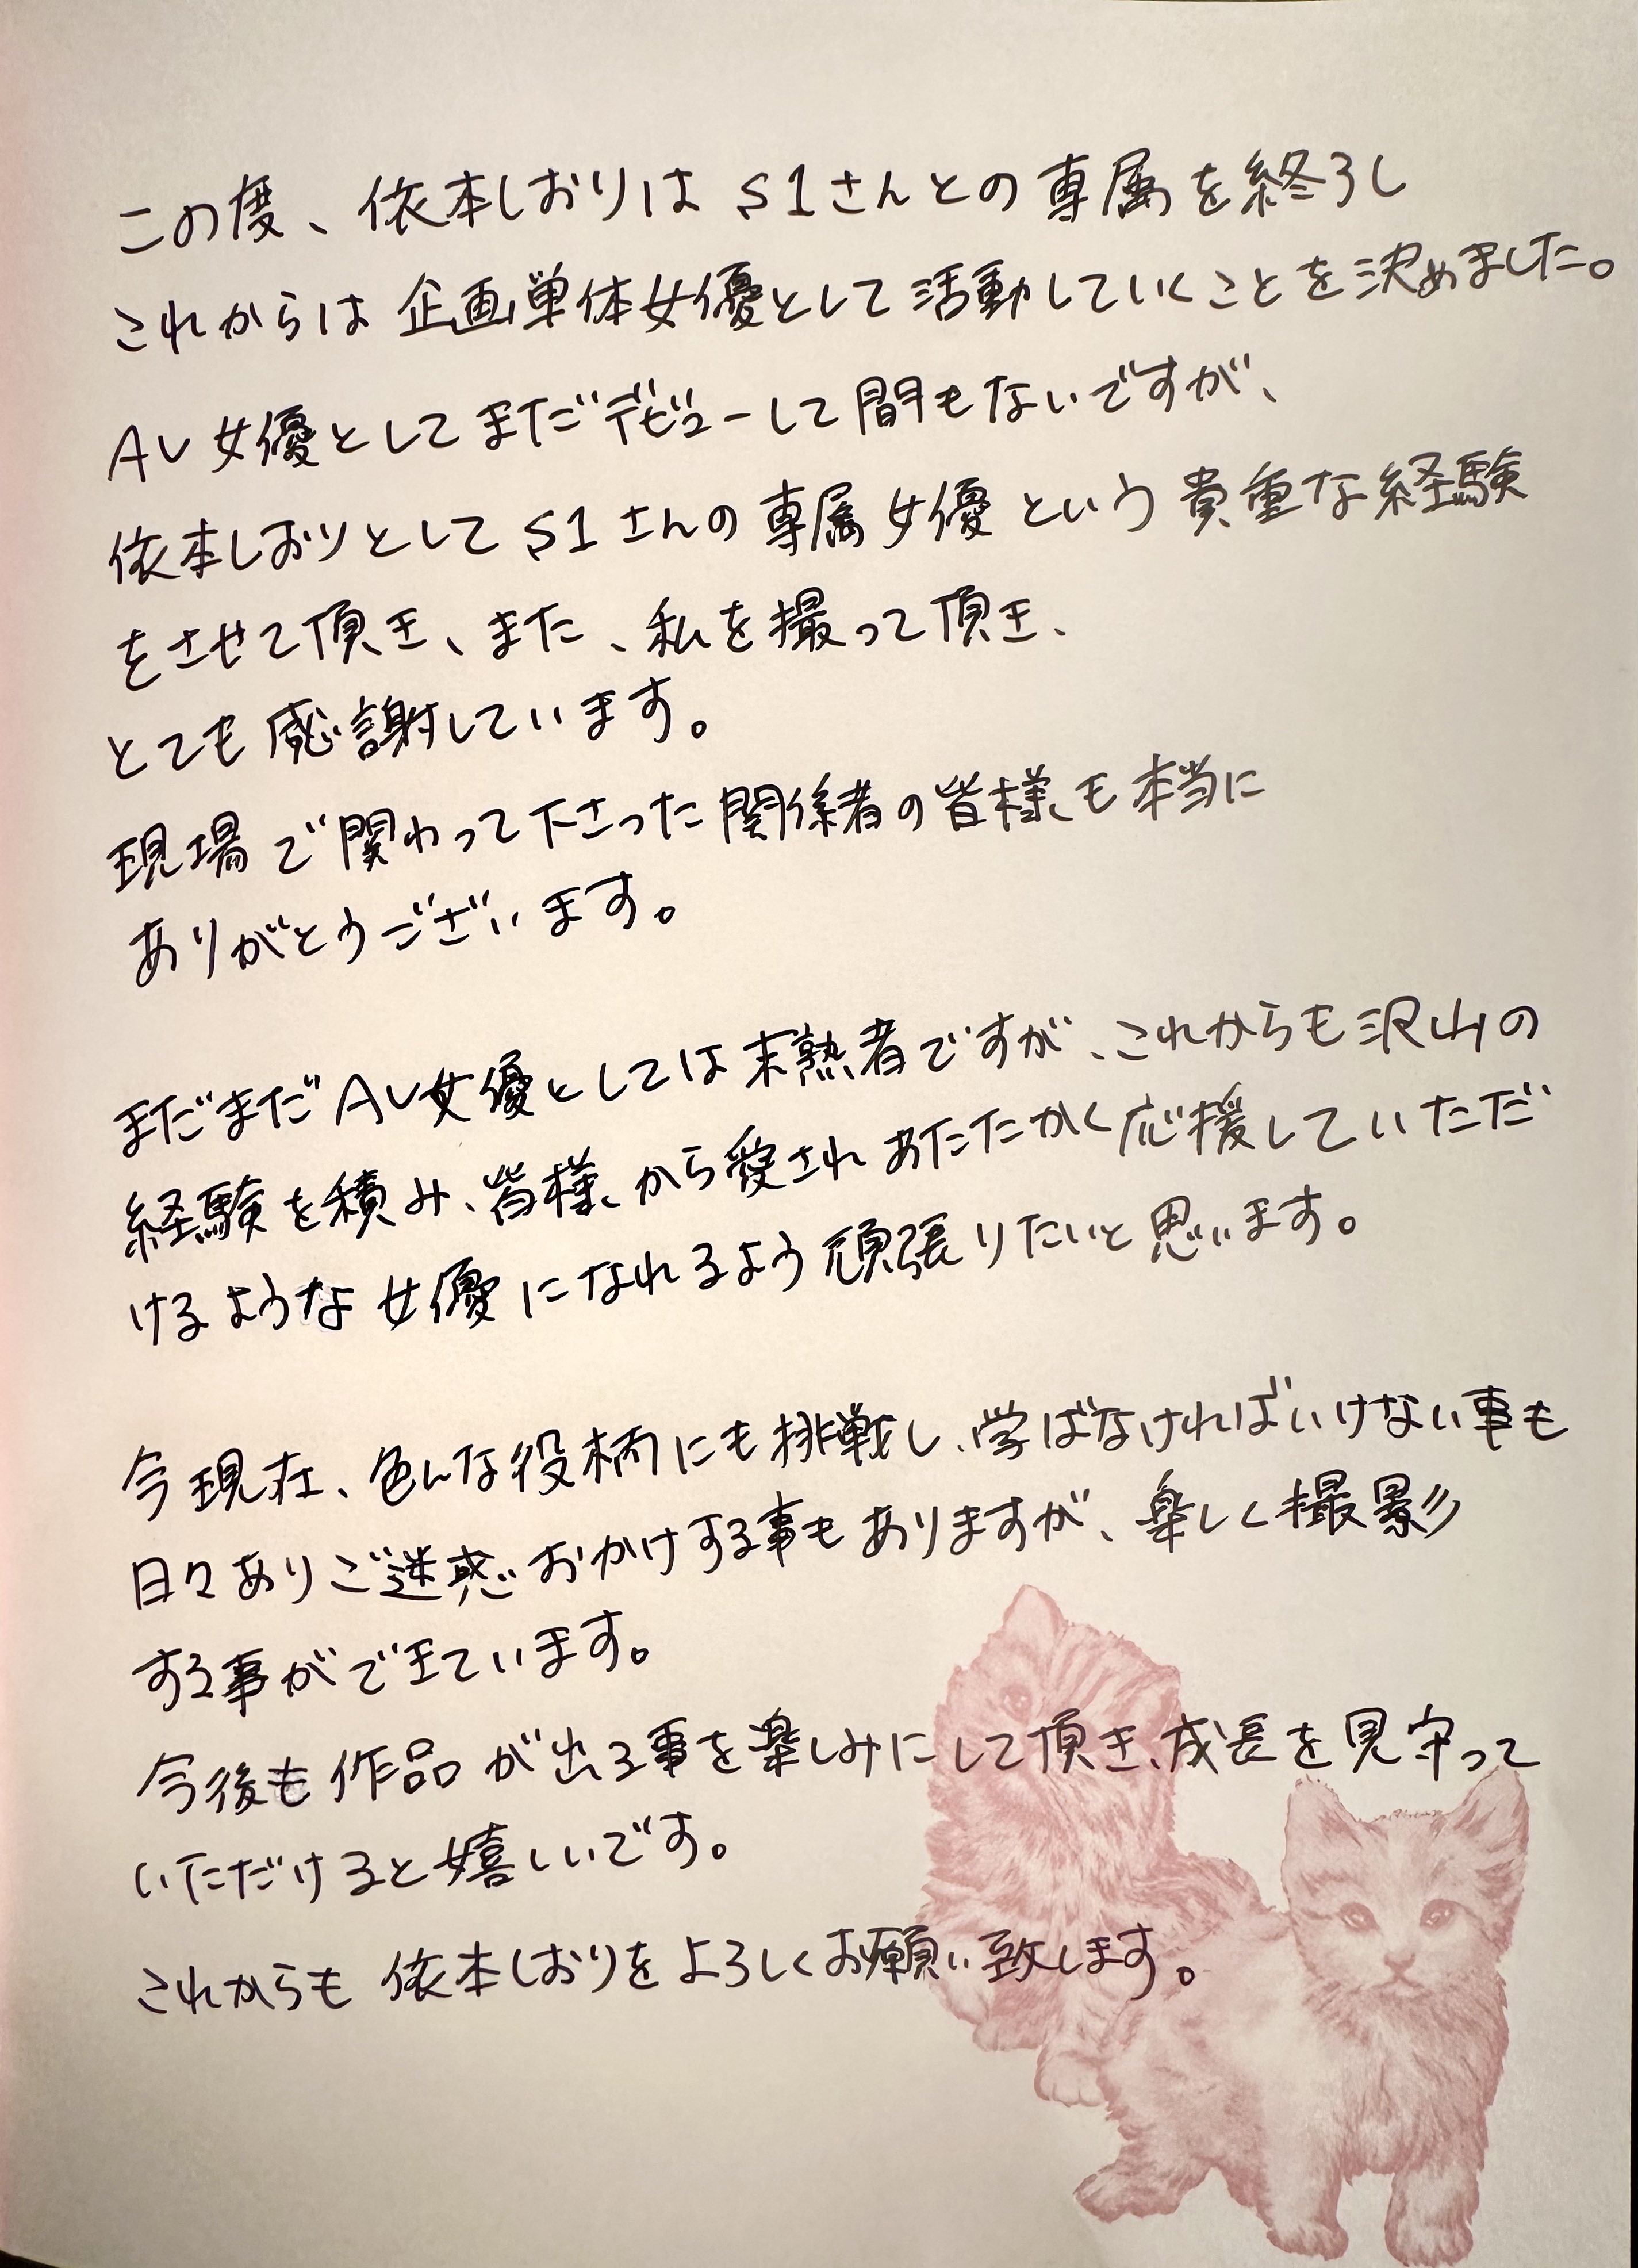 この度、依本しおりは S1さんとの専属を終了し
これからは 企画単体女優として活動していくことを決めました。
AV女優としてまだデビューして間もないですが、
依本しおりとして S1さんの専属女優という貴重な経験
をさせて頂き、また、私を撮って頂き、
とても感謝しています。
現場で関わって下さった関係者の皆様も本当に
ありがとうございます。
まだまだAV女優としては末熟者ですが、これからも沢山の
経験を積み、皆様から愛されあたたかく応援していただ
けるような女優になれるよう頑張りたいと思います。
今現在、色んな役柄にも挑戦し、学ばなければいけない事も
日々ありご迷惑おかけする事もありますが、楽しく撮影
する事ができています。
今後も作品が出る事を楽しみにして頂き、成長を見守って
いただけると嬉しいです。
これからも 依本しおりをよろしくお願い致します。